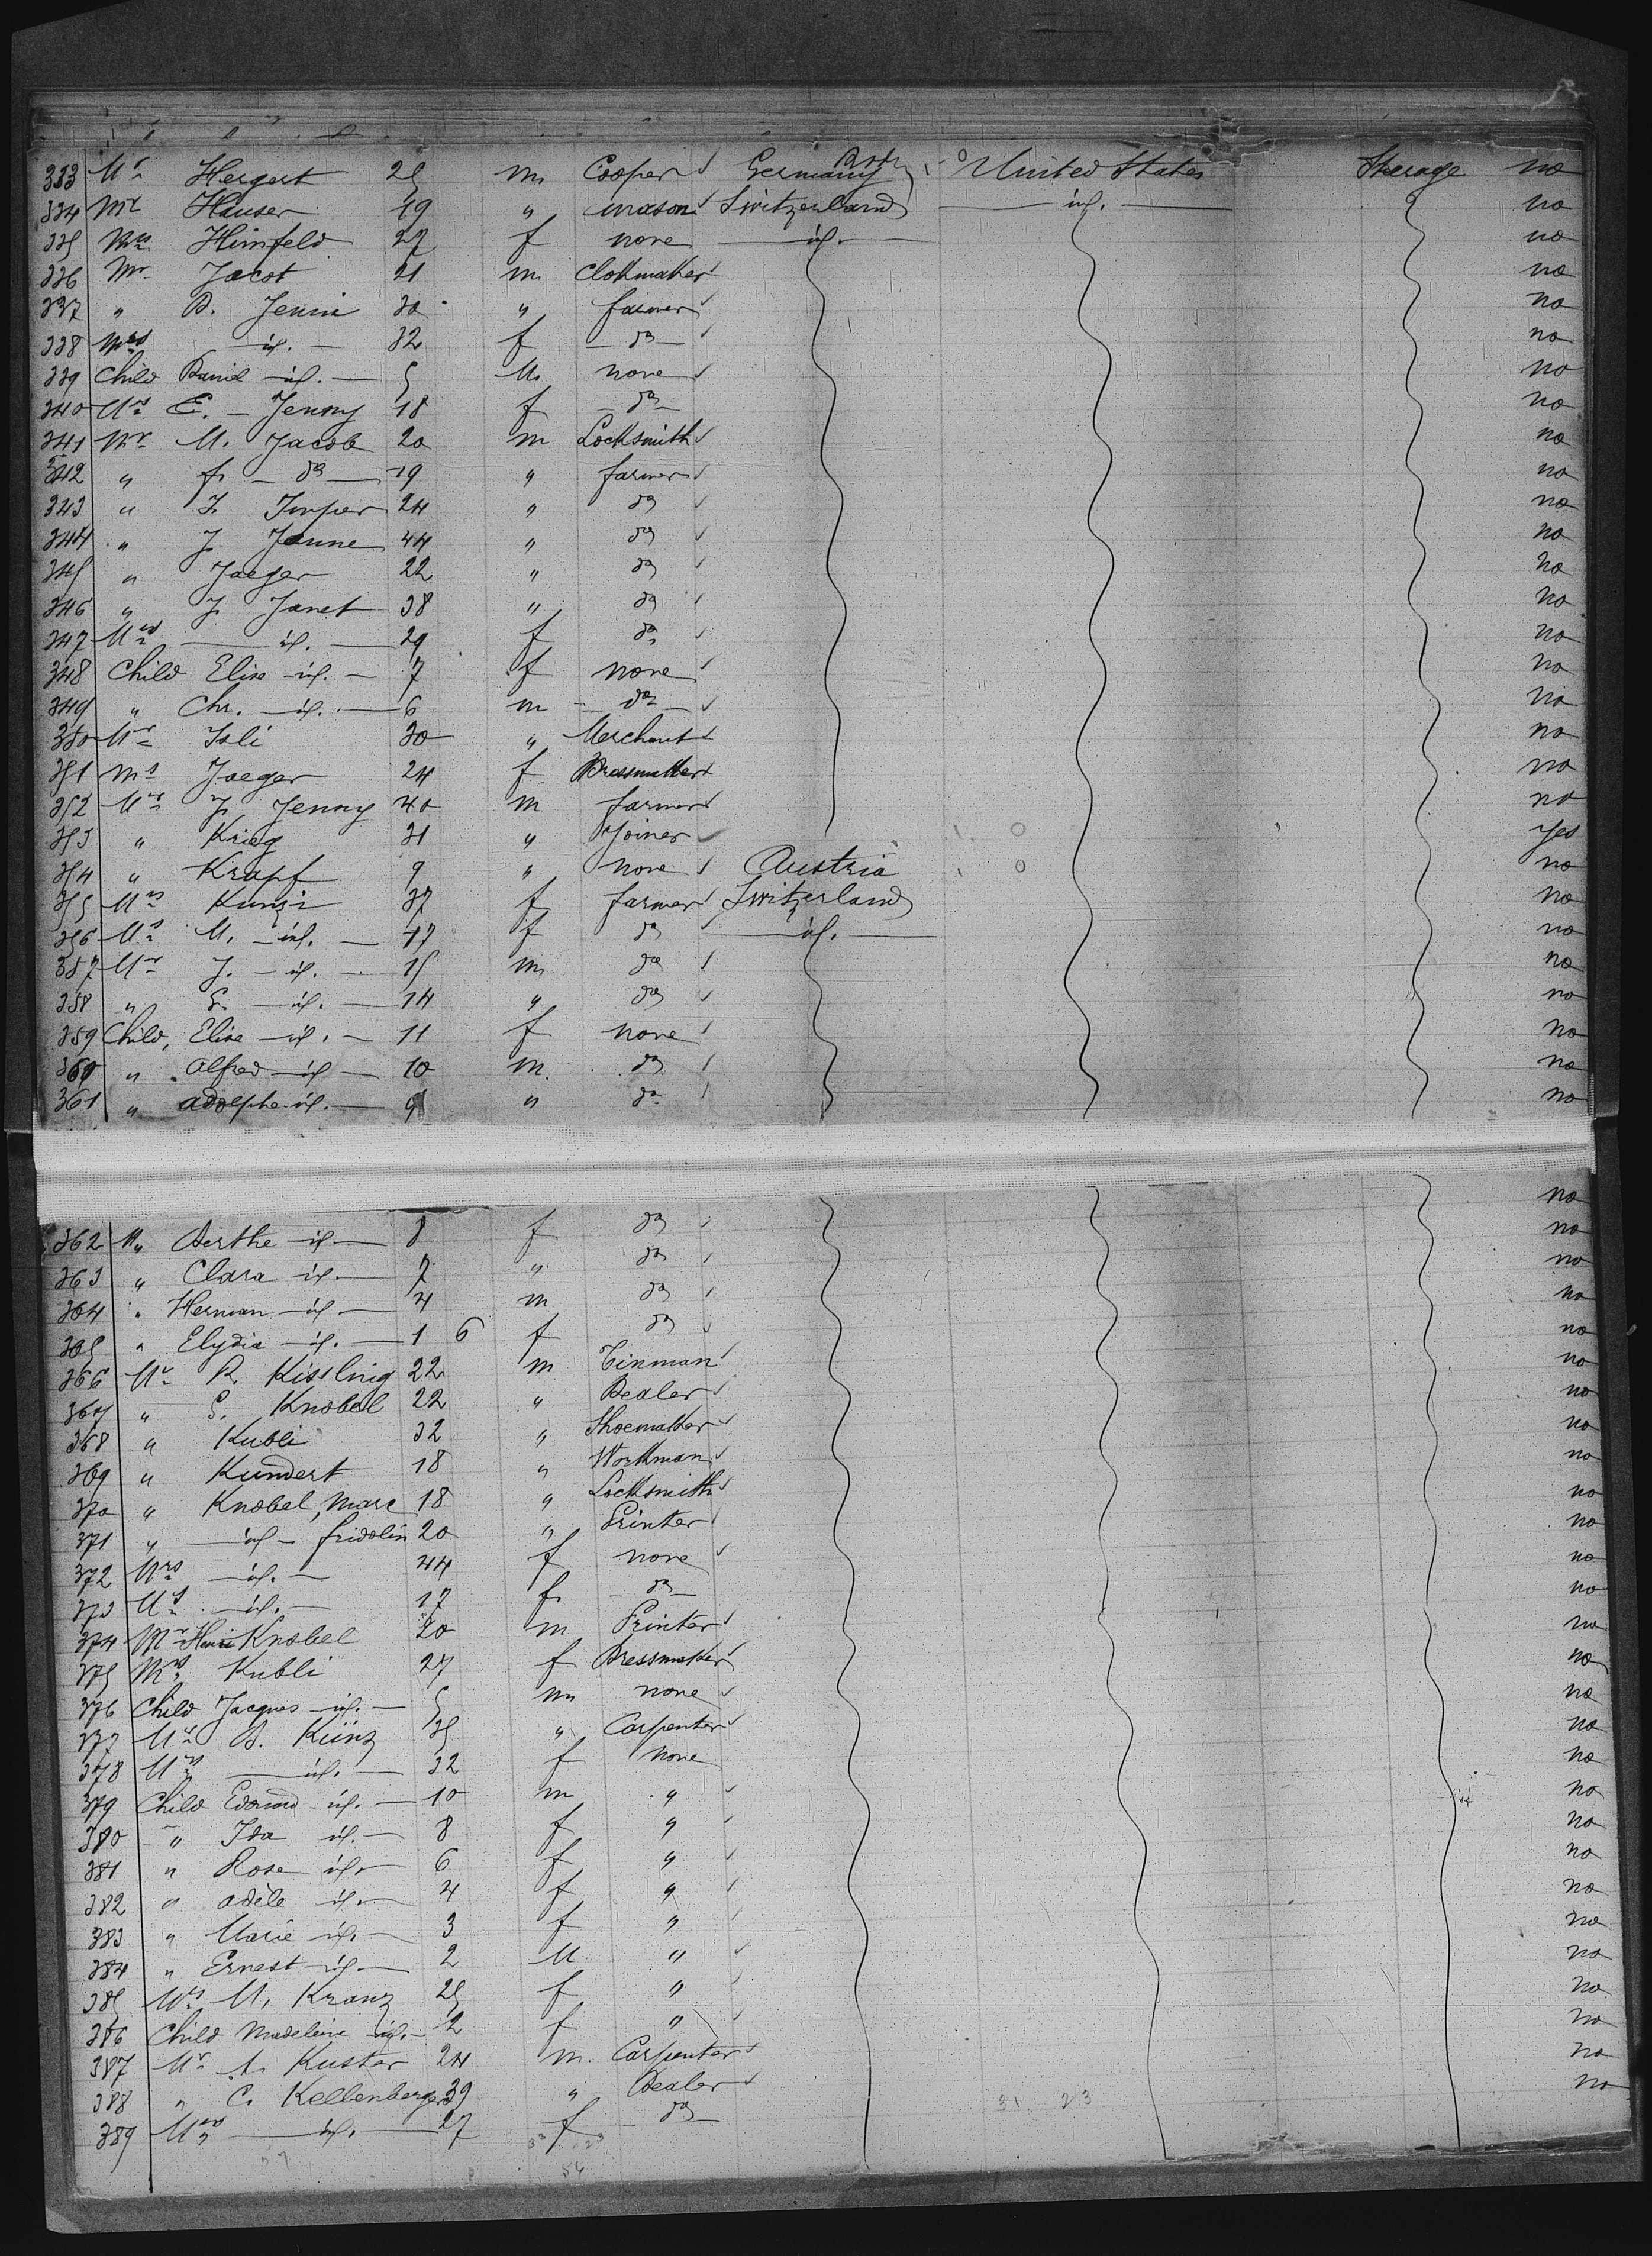 333 Mr Hergert 25 m Cooper Germany United States Steerage no
334 Mr Hauser 49 " mason Switzerland id. no
335 Mrs Himfeld 27 f none id. no
336 Mr Jacot 21 m Clokmaker no
337 " D. Jenni 30 " farmer no
338 Mrs id. 32 f do no
339 Child Daniel id. 5 M. none no
340 Ms E. Jenny 18 f do no
341 Mr M. Jacob 20 m Locksmith no
342 " f. do 19 " farmer no
343 " J. 24 " do no
344 " J. Janne 44 " do no
345 " Jaeger 22 " do no
346 " J. Janet 38 " do no
347 Mrs id. 29 f do no
348 Child Elise id. 7 f none no
349 " Chr. id. 6 m do no
350 Mr Isli 30 " Merchant no
351 Ms Jaeger 24 f Dressmaker no
352 Mr J. Jenny 40 m farmer no
353 " Krieg 31 " Joiner Yes
354 " Krapf 9 " none Austria no
355 Mrs Kunzi 37 f farmer Switzerland no
356 Ms M. id. 17 f do id. no
357 Mr J. id. 15 m do no
358 " E. id. 14 " do no
359 Child, Elise id. 11 f none no
360 " Alfred id 10 m. do no
361 " Adolphe id. 9 " do no
no
362 " Berthe id 8 f do no
363 " Clara id. 7 " do no
364 " Herman id 4 m do no
365 " Elydia id. 1 6 f do no
366 Mr R. Kissling 22 m Tinman no
367 " E. Knobel 22 " Dealer no
368 " Kubli 32 " Shoemaker no
369 " Kundert 18 " Workman no
370 " Knobel, Marc 18 " Locksmith no
371 " id fridolin 20 " Printer no
372 Mrs id. 44 f none no
373 Ms id. 17 f do no
374 Mr Henri Knobel 20 m Printer no
375 Mrs Kubli 27 f Dressmaker no
376 Child Jacques id. 5 m none no
377 Mr B. Künz 35 " Carpenter no
378 Mrs id. 32 f none no
379 Child Edouard id. 10 m " no
380 " Ida id. 8 f " no
381 " Rosa id. 6 f " no
382 " Adèle id. 4 f " no
383 " Marie id. 3 f " no
384 " Ernest id. 2 M " no
385 Mrs M. Kranz 25 f " no
386 Child Madeleine id. 2 f " no
387 Mr A. Kuster 24 m. Carpenter no
388 " C. Kellenberger 39 " Dealer no
389 Mrs id. 27 f do
31. 23